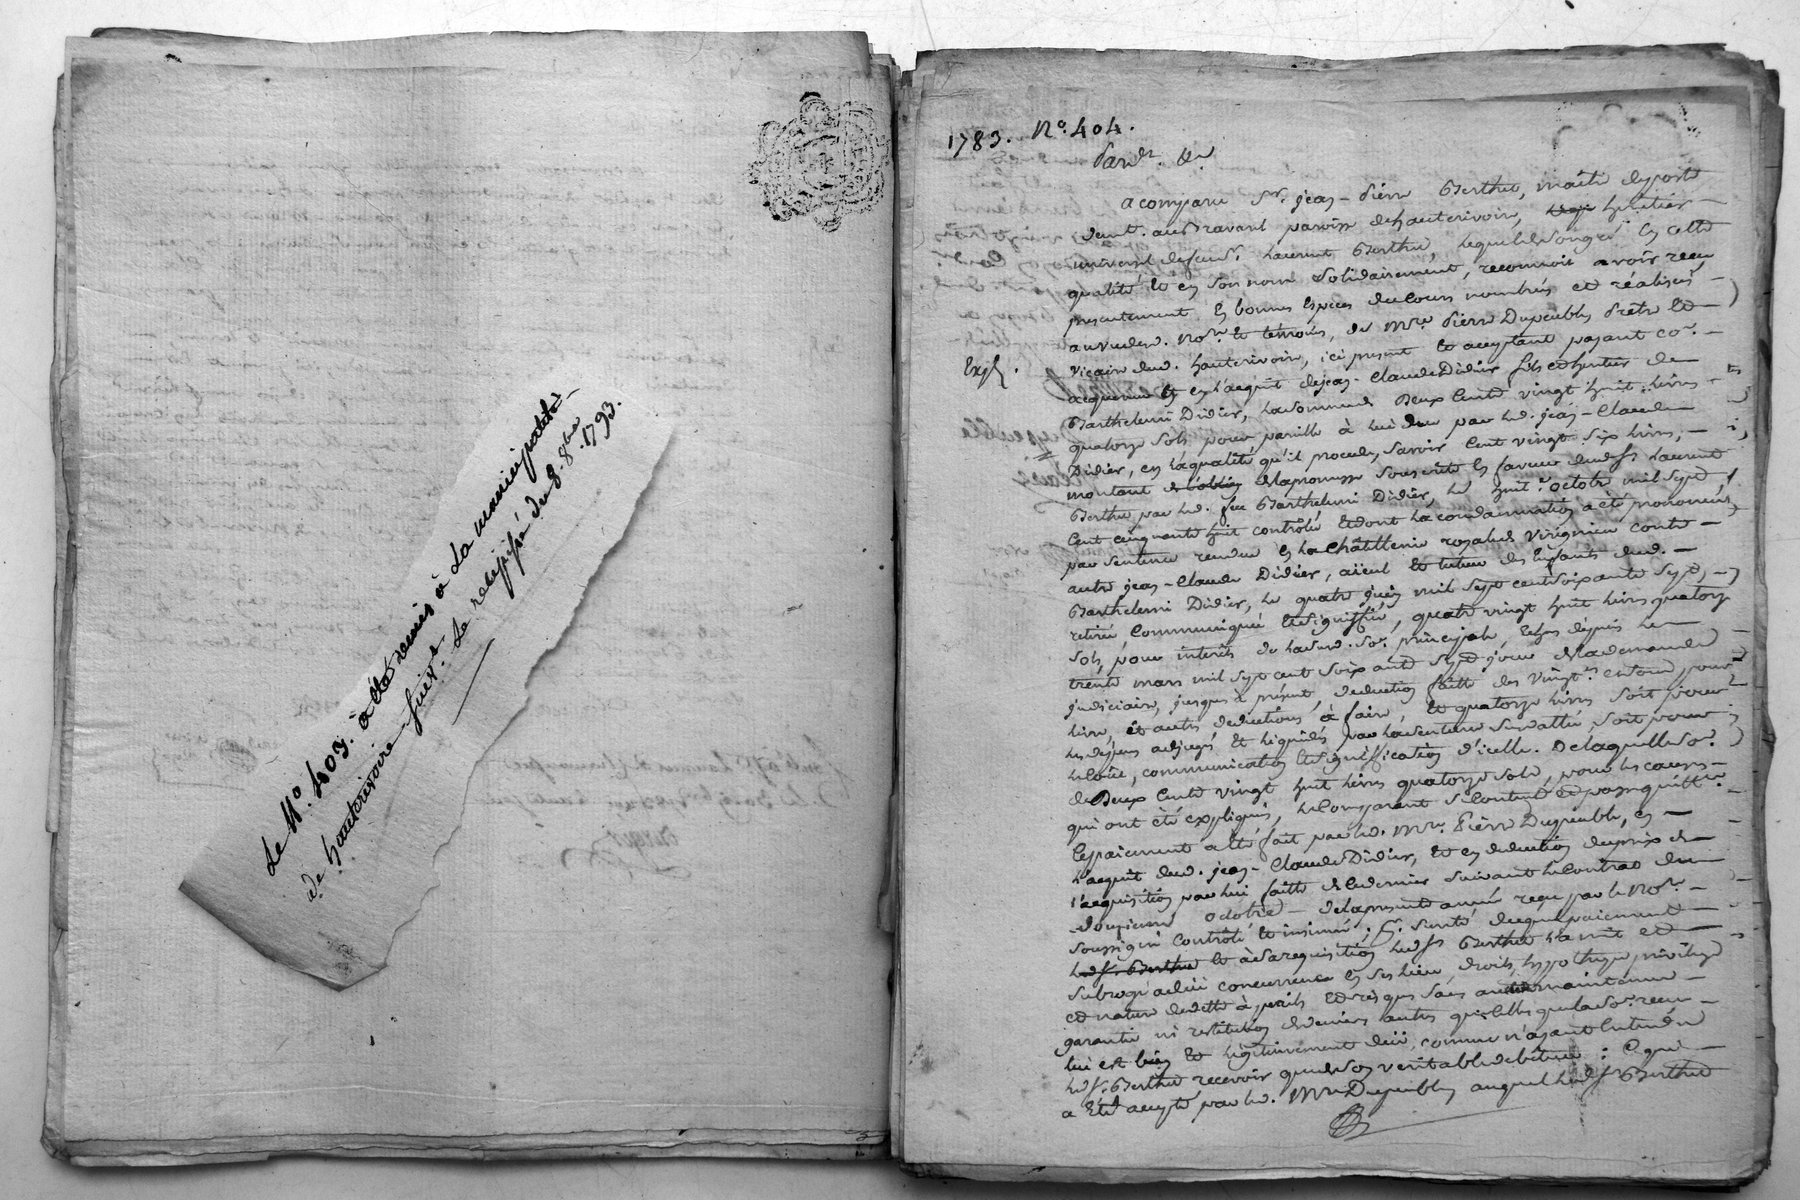 Le N.º 403. à été remis à La municipalité
de hauterivoire suivt. Le recepissé du 8. 8bre 1793.
1783. N.º 404.
Pardt. &a
a comparu Sr. jean-Pierre Berthet, maitre de poste
dem.t au Bravard paroisse de hauterivoire, heritier
universel de feu Sr. Laurent Berthet, lequel de son gré En cette
qualité Et en son nom Solidairement, reconnoit avoir reçu
presentement En bonnes Especes du cours nombrées et réalisées
au vu dud. Not.re Et temoins, de Mre. Pierre Dupeuble Prêtre Et
Vicaire dud. hauterivoire, ici present Et acceptant payant co.e
Exp.
acquereur Et en l'acquit de jean-Claude Didier fils et heritier de
Barthelemi Didier, la somme de Deux Cents vingt huit livres
quatorze Sols pour pareille à lui due par led. jean-Claude
Didier, en la qualité qu'il procede, Savoir Cent vingt Six livres,
montant de la promesse Souscrite En faveur dud. Sr. Laurent
Berthet par led. feu Barthelemi Didier, le huit 8.e octobre mil Sept
Cent cinquante huit contrôlé Et dont la condamnation a été prononcée
par Sentence rendue En la Châtellenie royale de Virignieu contre
autre jean-Claude Didier, aïeul Et tuteur des Enfants dud.
Barthelemi Didier, le quatre juin mil Sept cent Soixante Sept,
retirée Communiquée Et Signiffiée, quatre vingt huit livres quatorze
Sols, pour interets de lad. So.e principale, Echus depuis le
trente mars mil Sept cent Soixante Sept jour de la demande
judiciaire, jusques à présent, déduction faitte des vingt.es et Sou pour
livre, et autres déductions à faire, Et quatorze livres Soit pour
les dépens adjugés Et liquidés par la Sentence Sus dattée, Soit pour
le Coût, communication Et Signiffication d'icelle. De laquelle So.e
de Deux Cents vingt huit livres quatorze Sols, pour les causes
qui ont été expliquées, le Comparant Se Contente et passe quitt.ce
Le paiement a été fait par led. Mre. Pierre Dupeuble, en
l'acquit dud. jean-Claude Didier, Et en deduction du prix de
l'acquisition par lui faitte de ce dernier Suivant le Contrat du
douzieme octobre de la presente année reçu par le Not.re
Soussigné Contrôlé Et insinué; Et. Sureté duquel paiement
led. Sr. Berthet Et à Sa requisition led. Sr. Berthet l'a mit et
Subrogé à dûe concurrence En Ses lieu, droits, hypotheque privilege
et nature de dette à perils Et risques Sans autre maintenue
garantie ni restitution de deniers autres que Celles que la So.e recue
lui est bien Et legitimement düe, comme n'ayant Entendu
led. Sr. Berthet recevoir que de Son veritable debiteur: Ce qui
a Eté accepté par led. Mre. Dupeuble, auquel led. Sr. Berthet